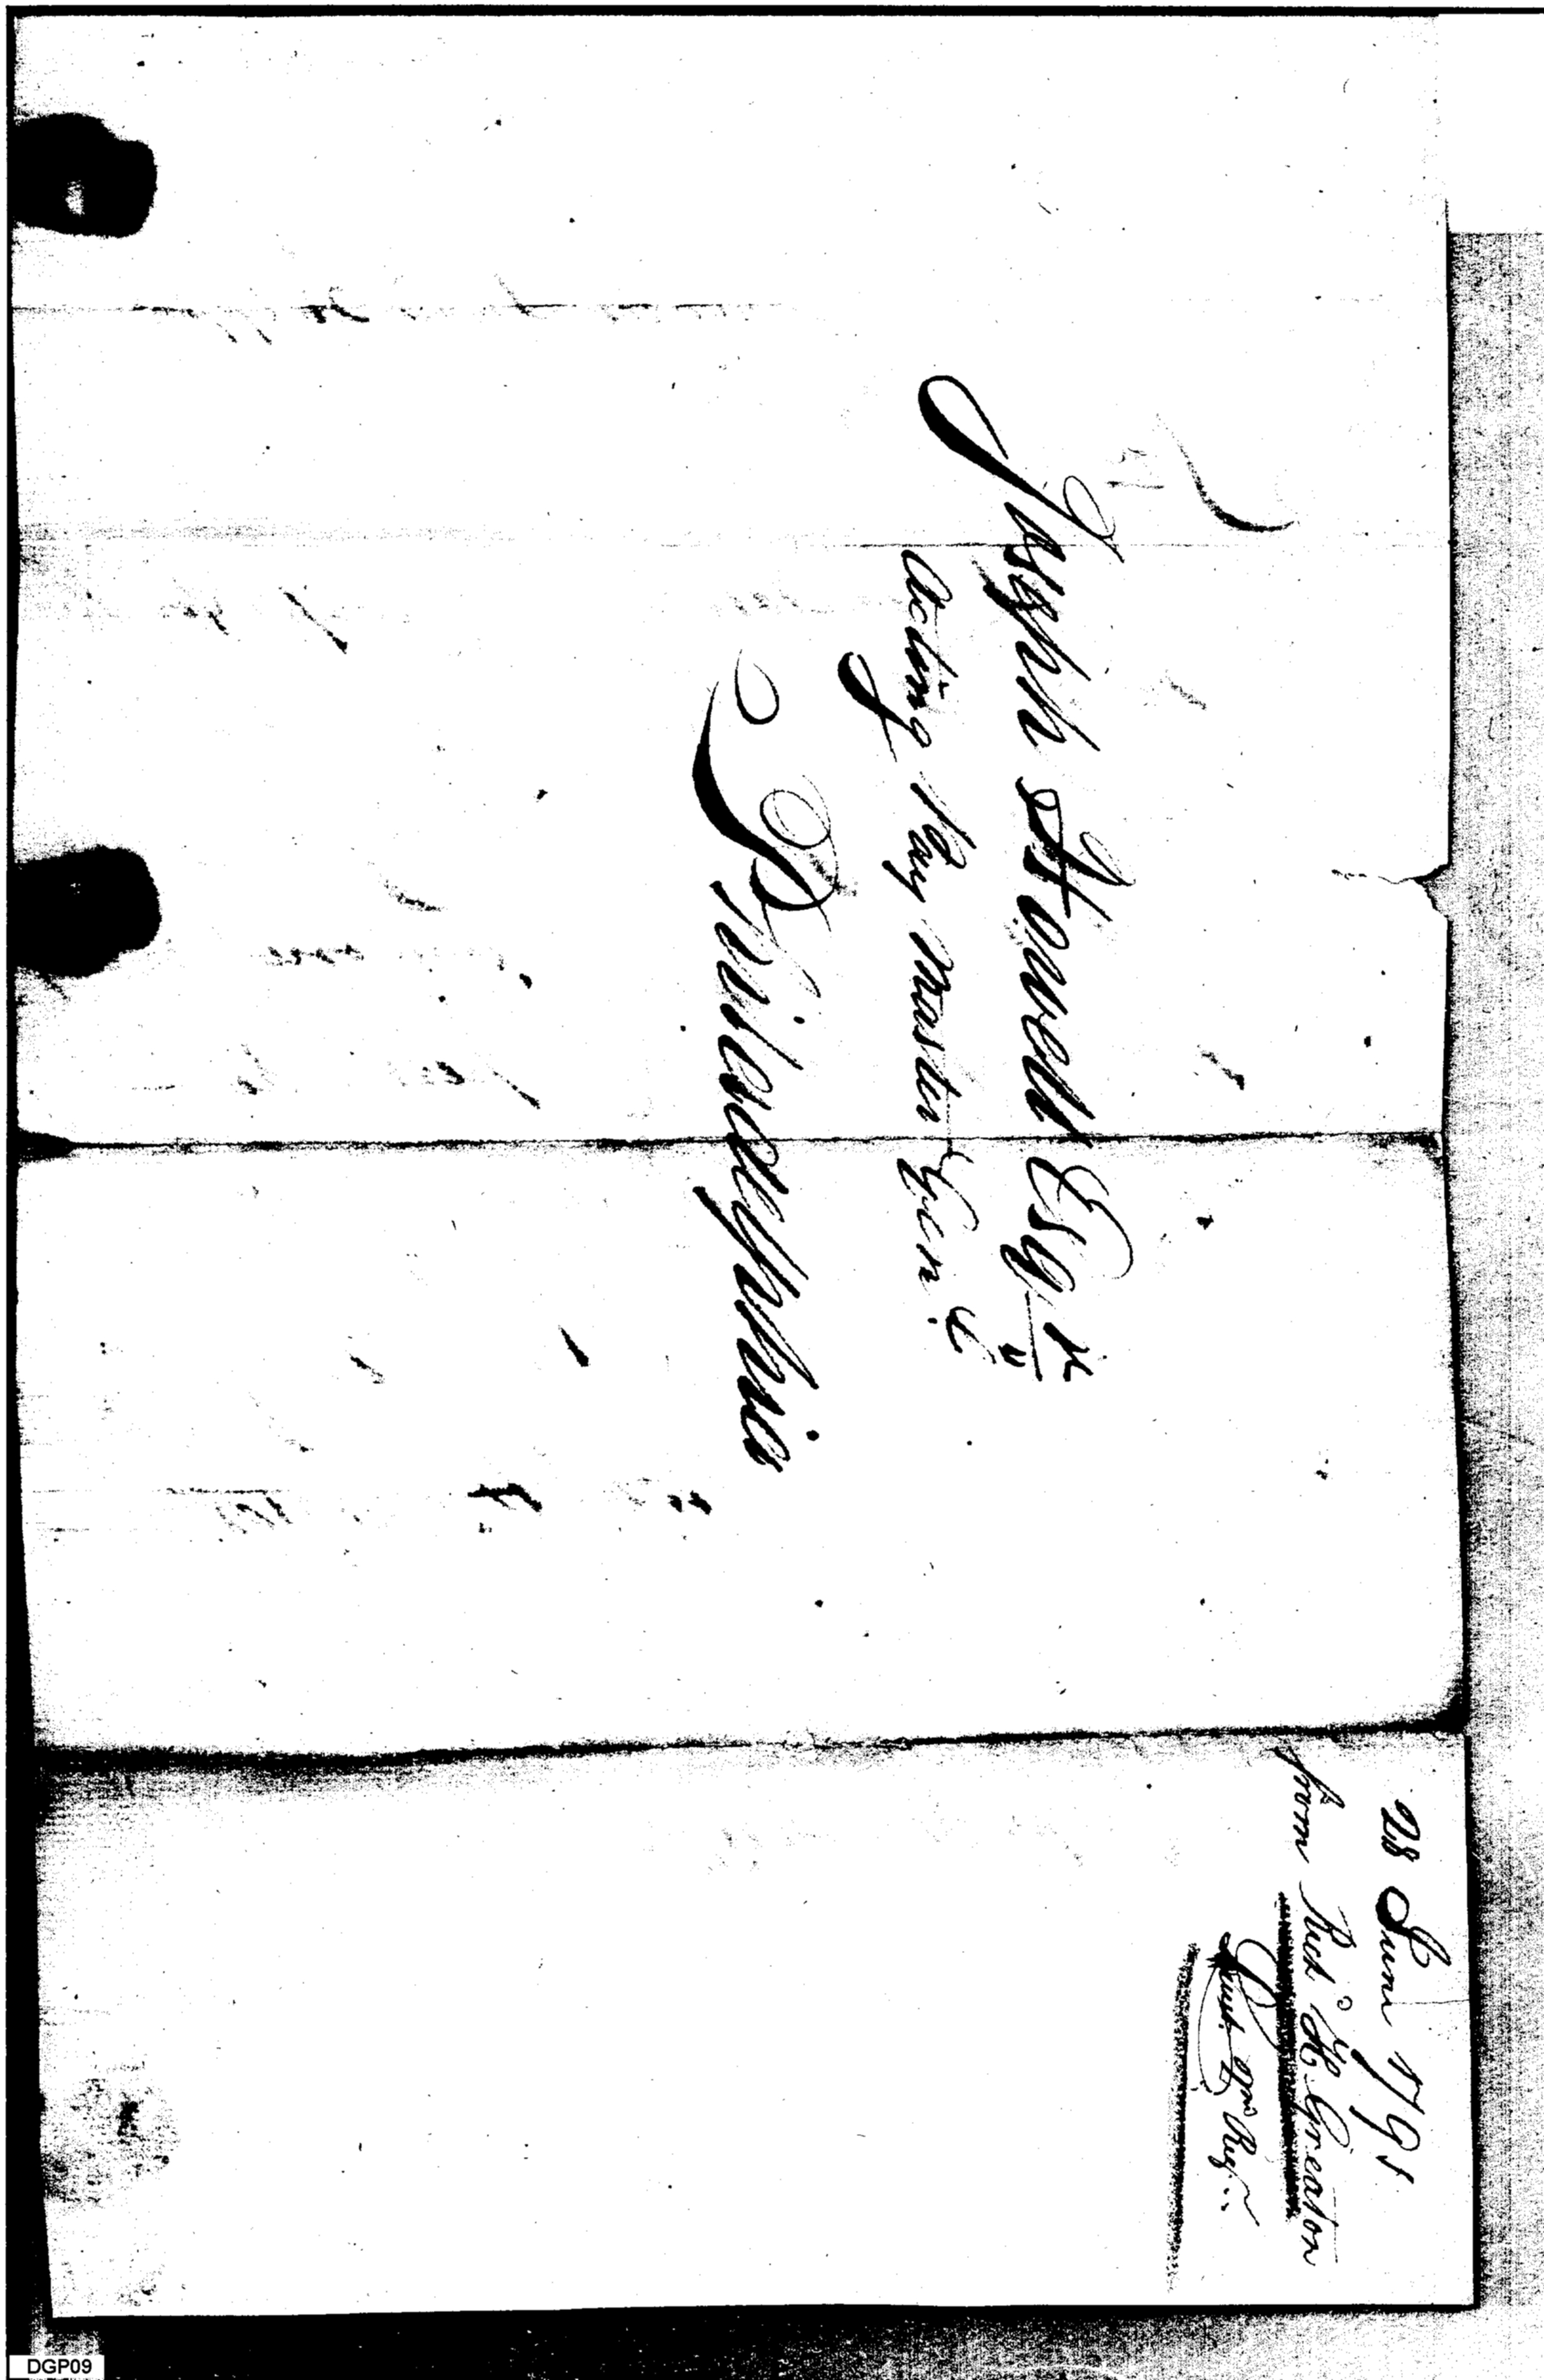 Joseph Howell Esqr
Acting Pay Master Genl
Philadelphia
28 June 1791
from Rich'd H. Greaton
Lieut. 2nd Reg..
DGP09